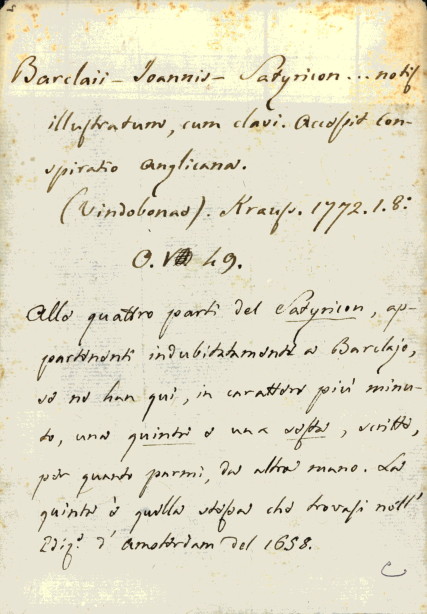 Barclaii – Joannis – Satyricon ... notis
illustratum, cum clavi. Accessit Con-
spiratio Anglicana.
(Vindobonae). Krauss. 1772. 1. 8:
O. V 49.
Alle quattro parti del Satyricon, ap-
partenenti indubitatamente a Barclajo,
se ne han qui, in carattere più minu-
to, una quinta e una sesta, scritte,
per quanto parmi, da altra mano. La
quinta è quella stessa che trovasi nell'
Ediz.e d'Amsterdam del 1658.